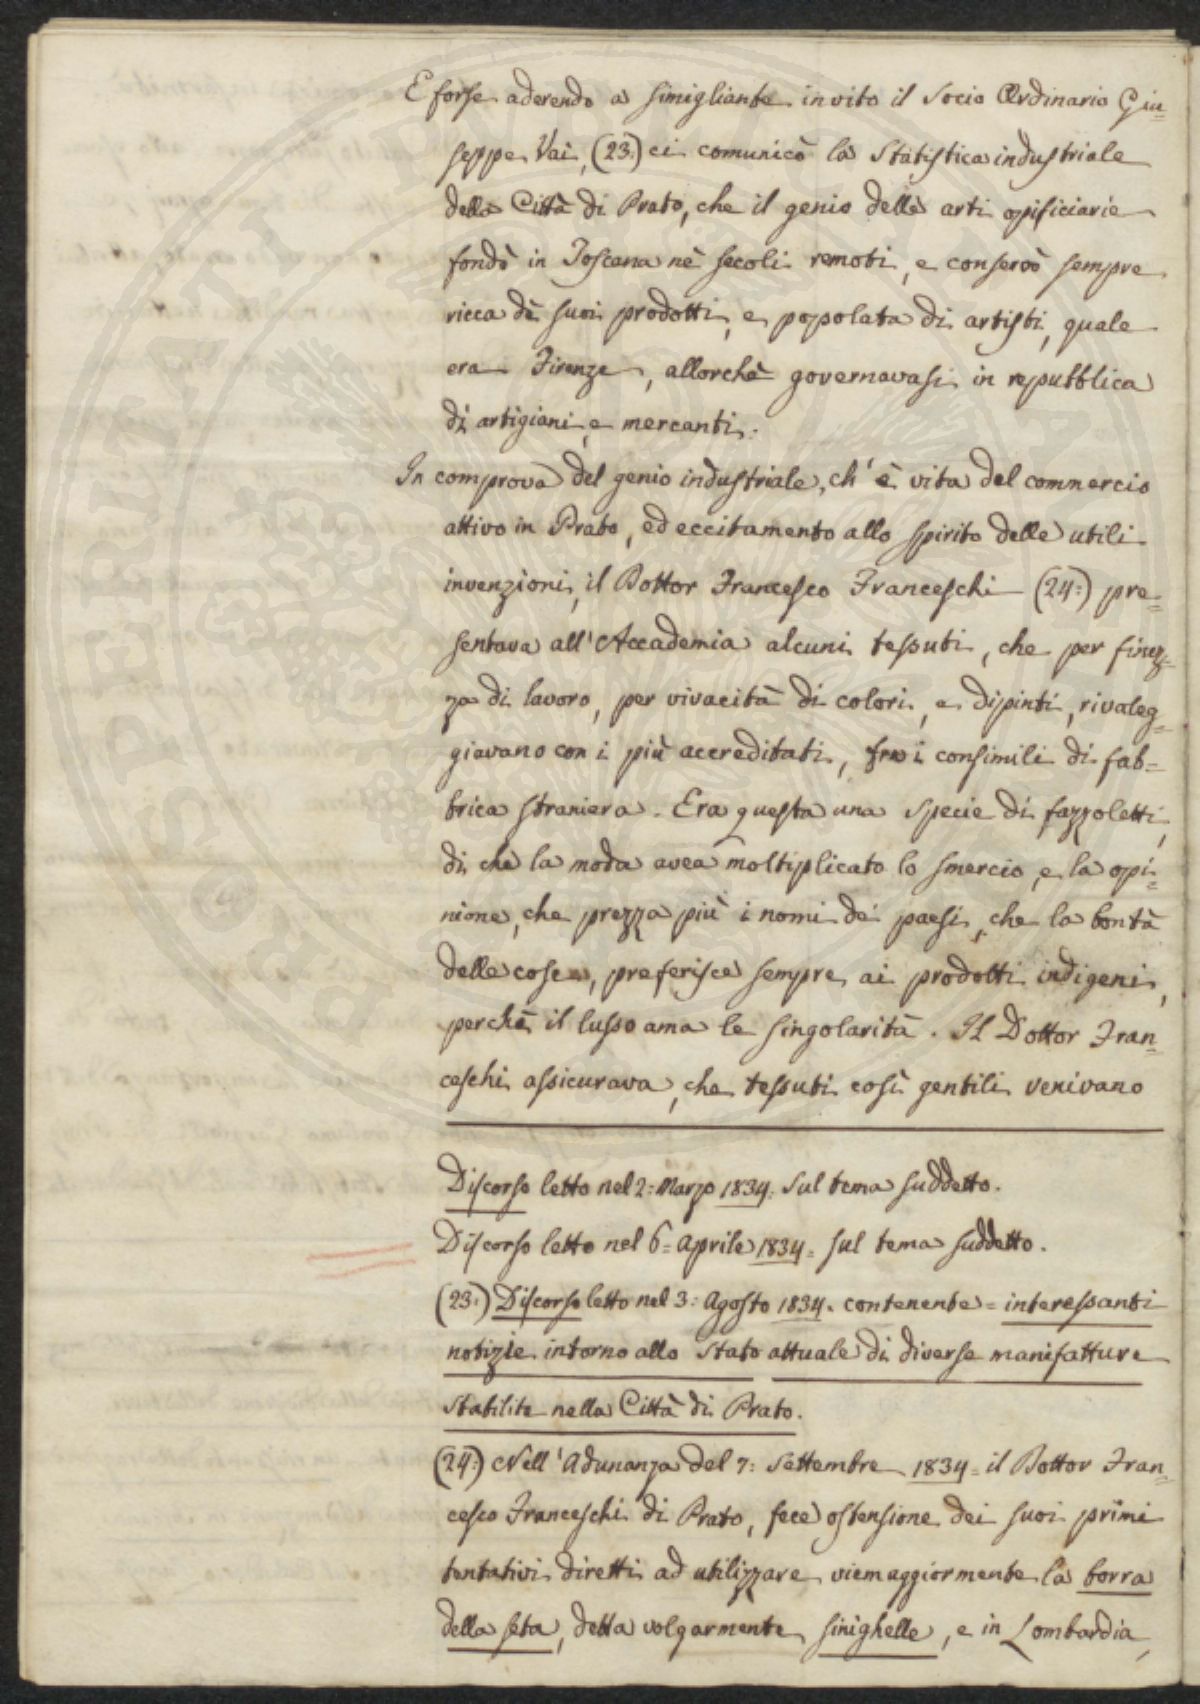 E forse aderendo a simigliante invito il Socio Ordinario Giu=
seppe Vai, (23:) ci comunicò la Statistica industriale
della Città di Prato, che il genio delle arti opificiarie
fondò in Toscana nè secoli remoti, e conservò sempre
ricca dè suoi prodotti, e popolata di artisti, quale
era Firenze, allorchè governavasi in repubblica
di artigiani, e mercanti.
In comprova del genio industriale, ch'è vita del commercio
attivo in Prato, ed eccitamento allo spirito delle utili
invenzioni, il Dottor Francesco Franceschi (24:) pre=
sentava all'Accademia alcuni tessuti, che per finez=
za di lavoro, per vivacità di colori, e dipinti, rivaleg=
giavano con i più accreditati, fra i consimili di fab=
brica straniera. Era questa una specie di fazzoletti,
di che la moda avea moltiplicato lo smercio, e la opi=
nione, che prezza più i nomi dei paesi, che la bontà
delle cose, preferisce sempre ai prodotti indigeni,
perchè il lusso ama le singolarità. Il Dottor Fran=
ceschi assicurava, che tessuti così gentili venivano
Discorso letto nel 2: Marzo 1834: sul tema suddetto.
Discorso letto nel 6= Aprile 1834= sul tema suddetto.
(23:) Discorso letto nel 3: Agosto 1834. contenente= interessanti
notizie intorno allo stato attuale di diverse manifatture
stabilite nella Città di Prato.
(24:) Nell'Adunanza del 7: Settembre 1834= il Dottor Fran=
cesco Franceschi di Prato, fece ostensione dei suoi primi
tentativi diretti ad utilizzare viemaggiormente la borra
della seta, detta volgarmente sinighelle, e in Lombardia,